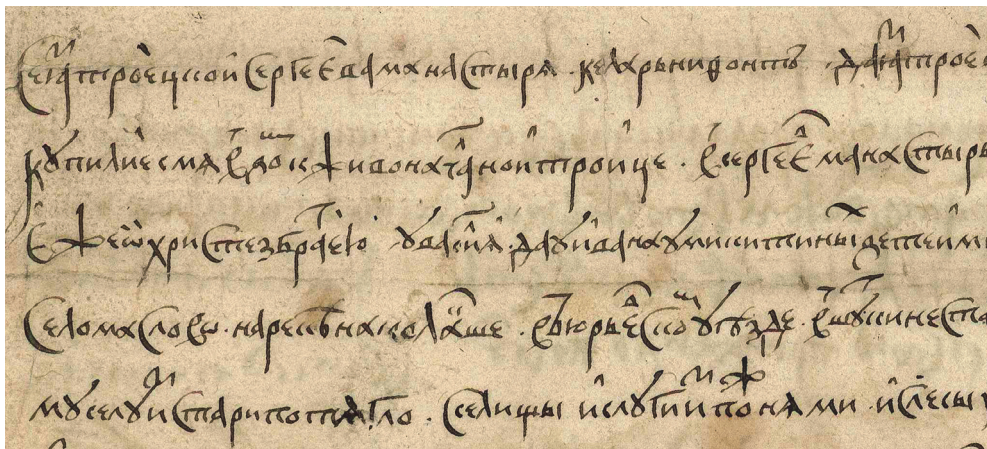 Се ꙗз троецкои Сергеева манастыря келарь нифонтъ дал ꙗ троец
купили есмя в дом живоначалнои троице в Сергеев манастырь
еже ѡ христе з братею у васиꙗ да у ивана у микитиных детеи ми
Село маслово на реце на колакше в юрьевском уезде в шуткине ста
му селу истари потягло с селищы и с луги и с пожнями и с лесы